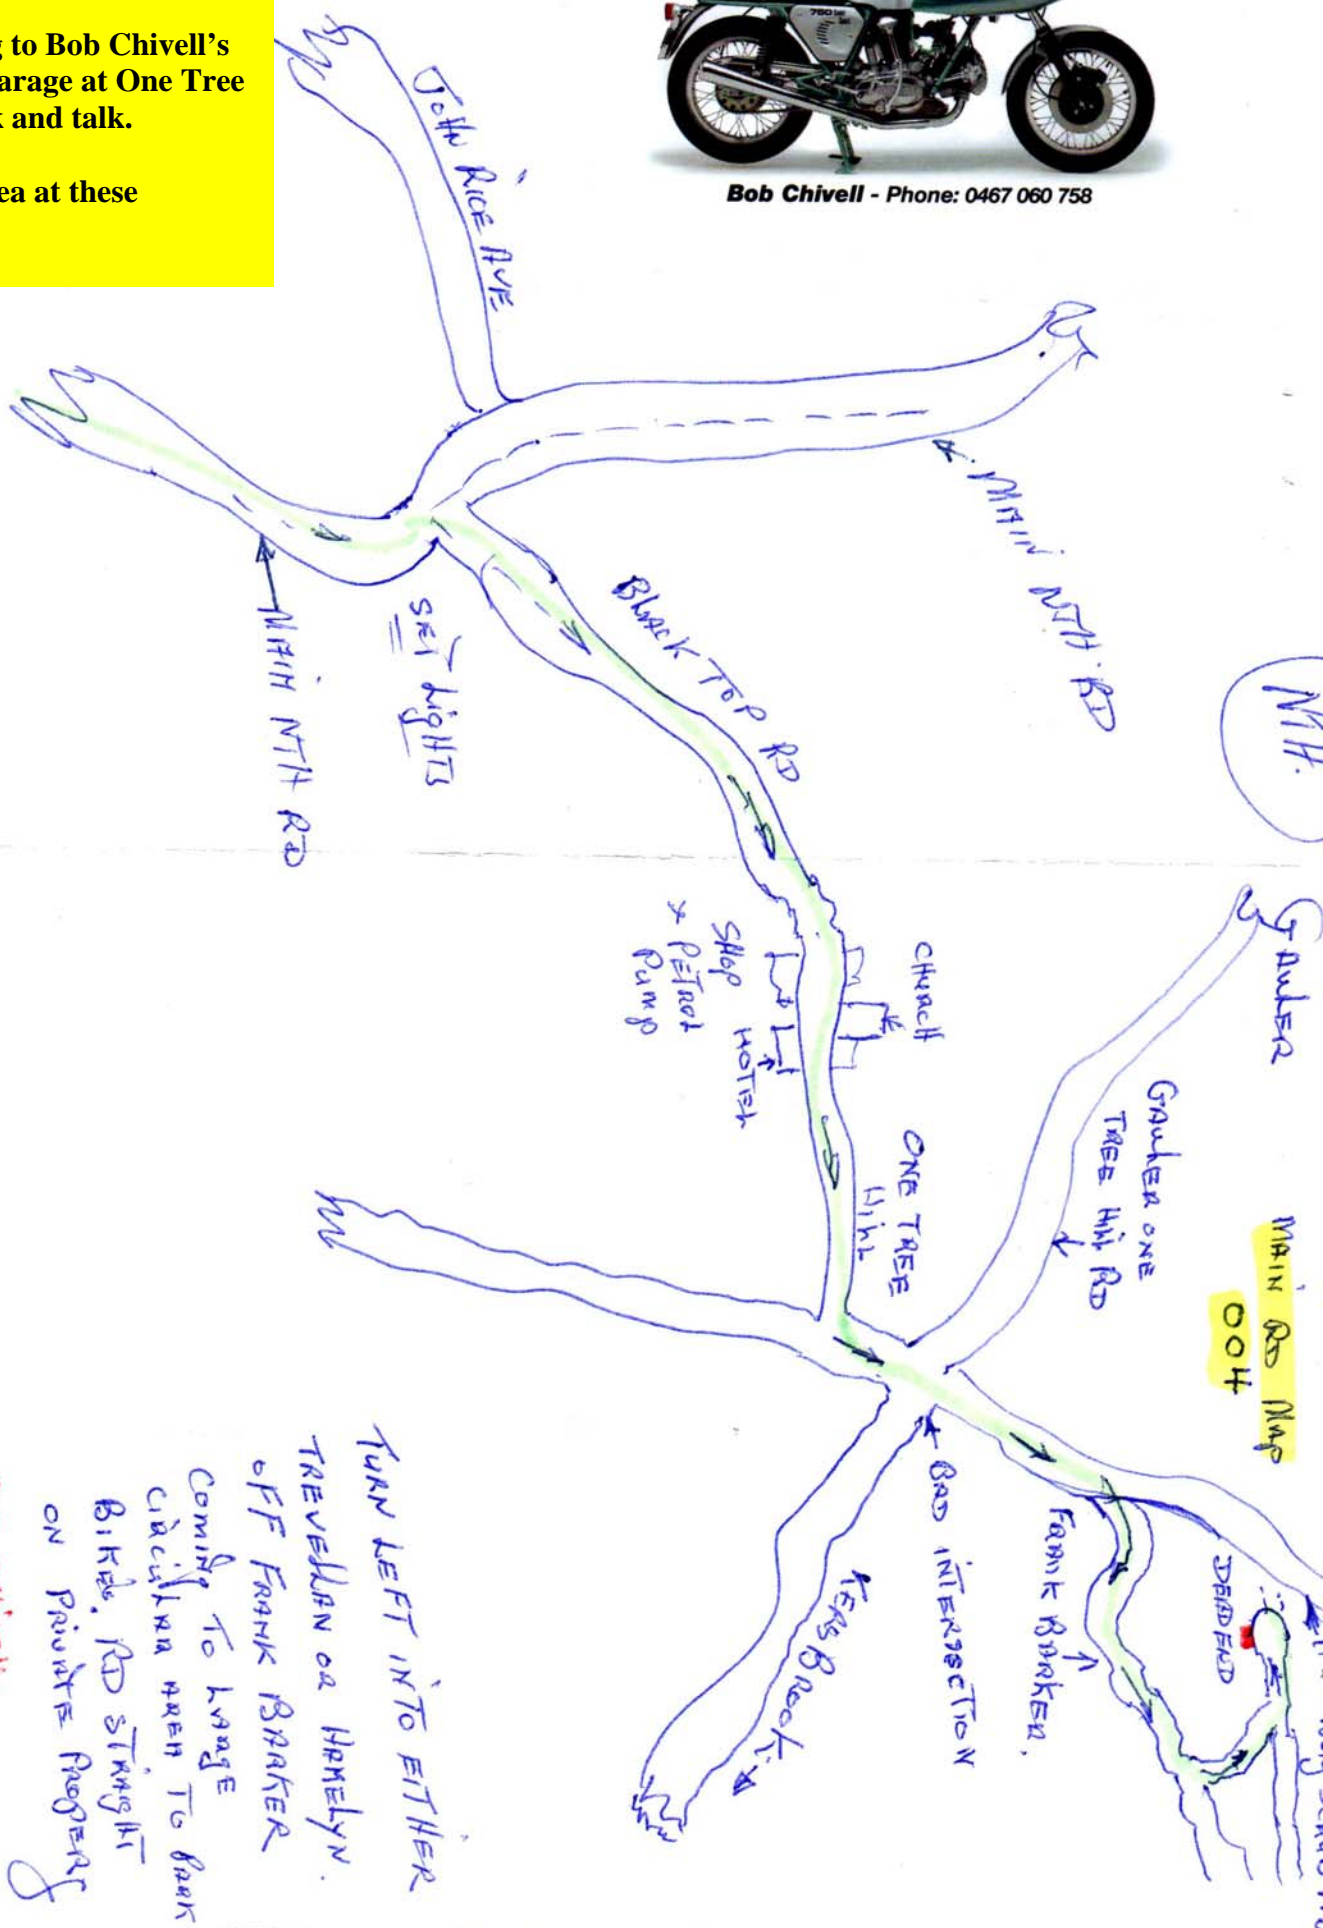 g to Bob Chivell's
arage at One Tree
k and talk.
ea at these
750
Bob Chivell - Phone: 0467 060 758
JOHN RICE AVE
MAIN NTH RD
NTH.
MAIN NTH RD
SET LIGHTS
BLACK TOP RD
CHURCH
SHOP
x PETROL
PUMP
HOTEL
ONE TREE
HILL
GAWLER
GAWLER ONE
TREE HILL RD
MAIN RD MAP
OOH
BAD INTERSECTION
KERSBROOK.
FRANK BARKER.
DEAD END
TURN LEFT INTO EITHER
TREVELLAN OR HAMELYN.
OFF FRANK BARKER
COMING TO LARGE
CIRCULAR AREA TO PARK
BIKES. RD STRAIGHT
ON PRIVATE PROPERY